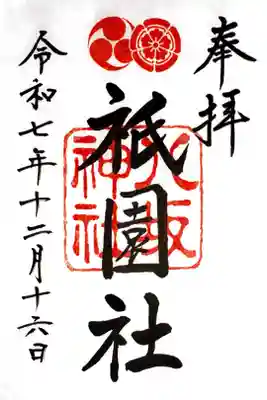 奉拝
祇園社
八坂神社
令和七年十二月十六日